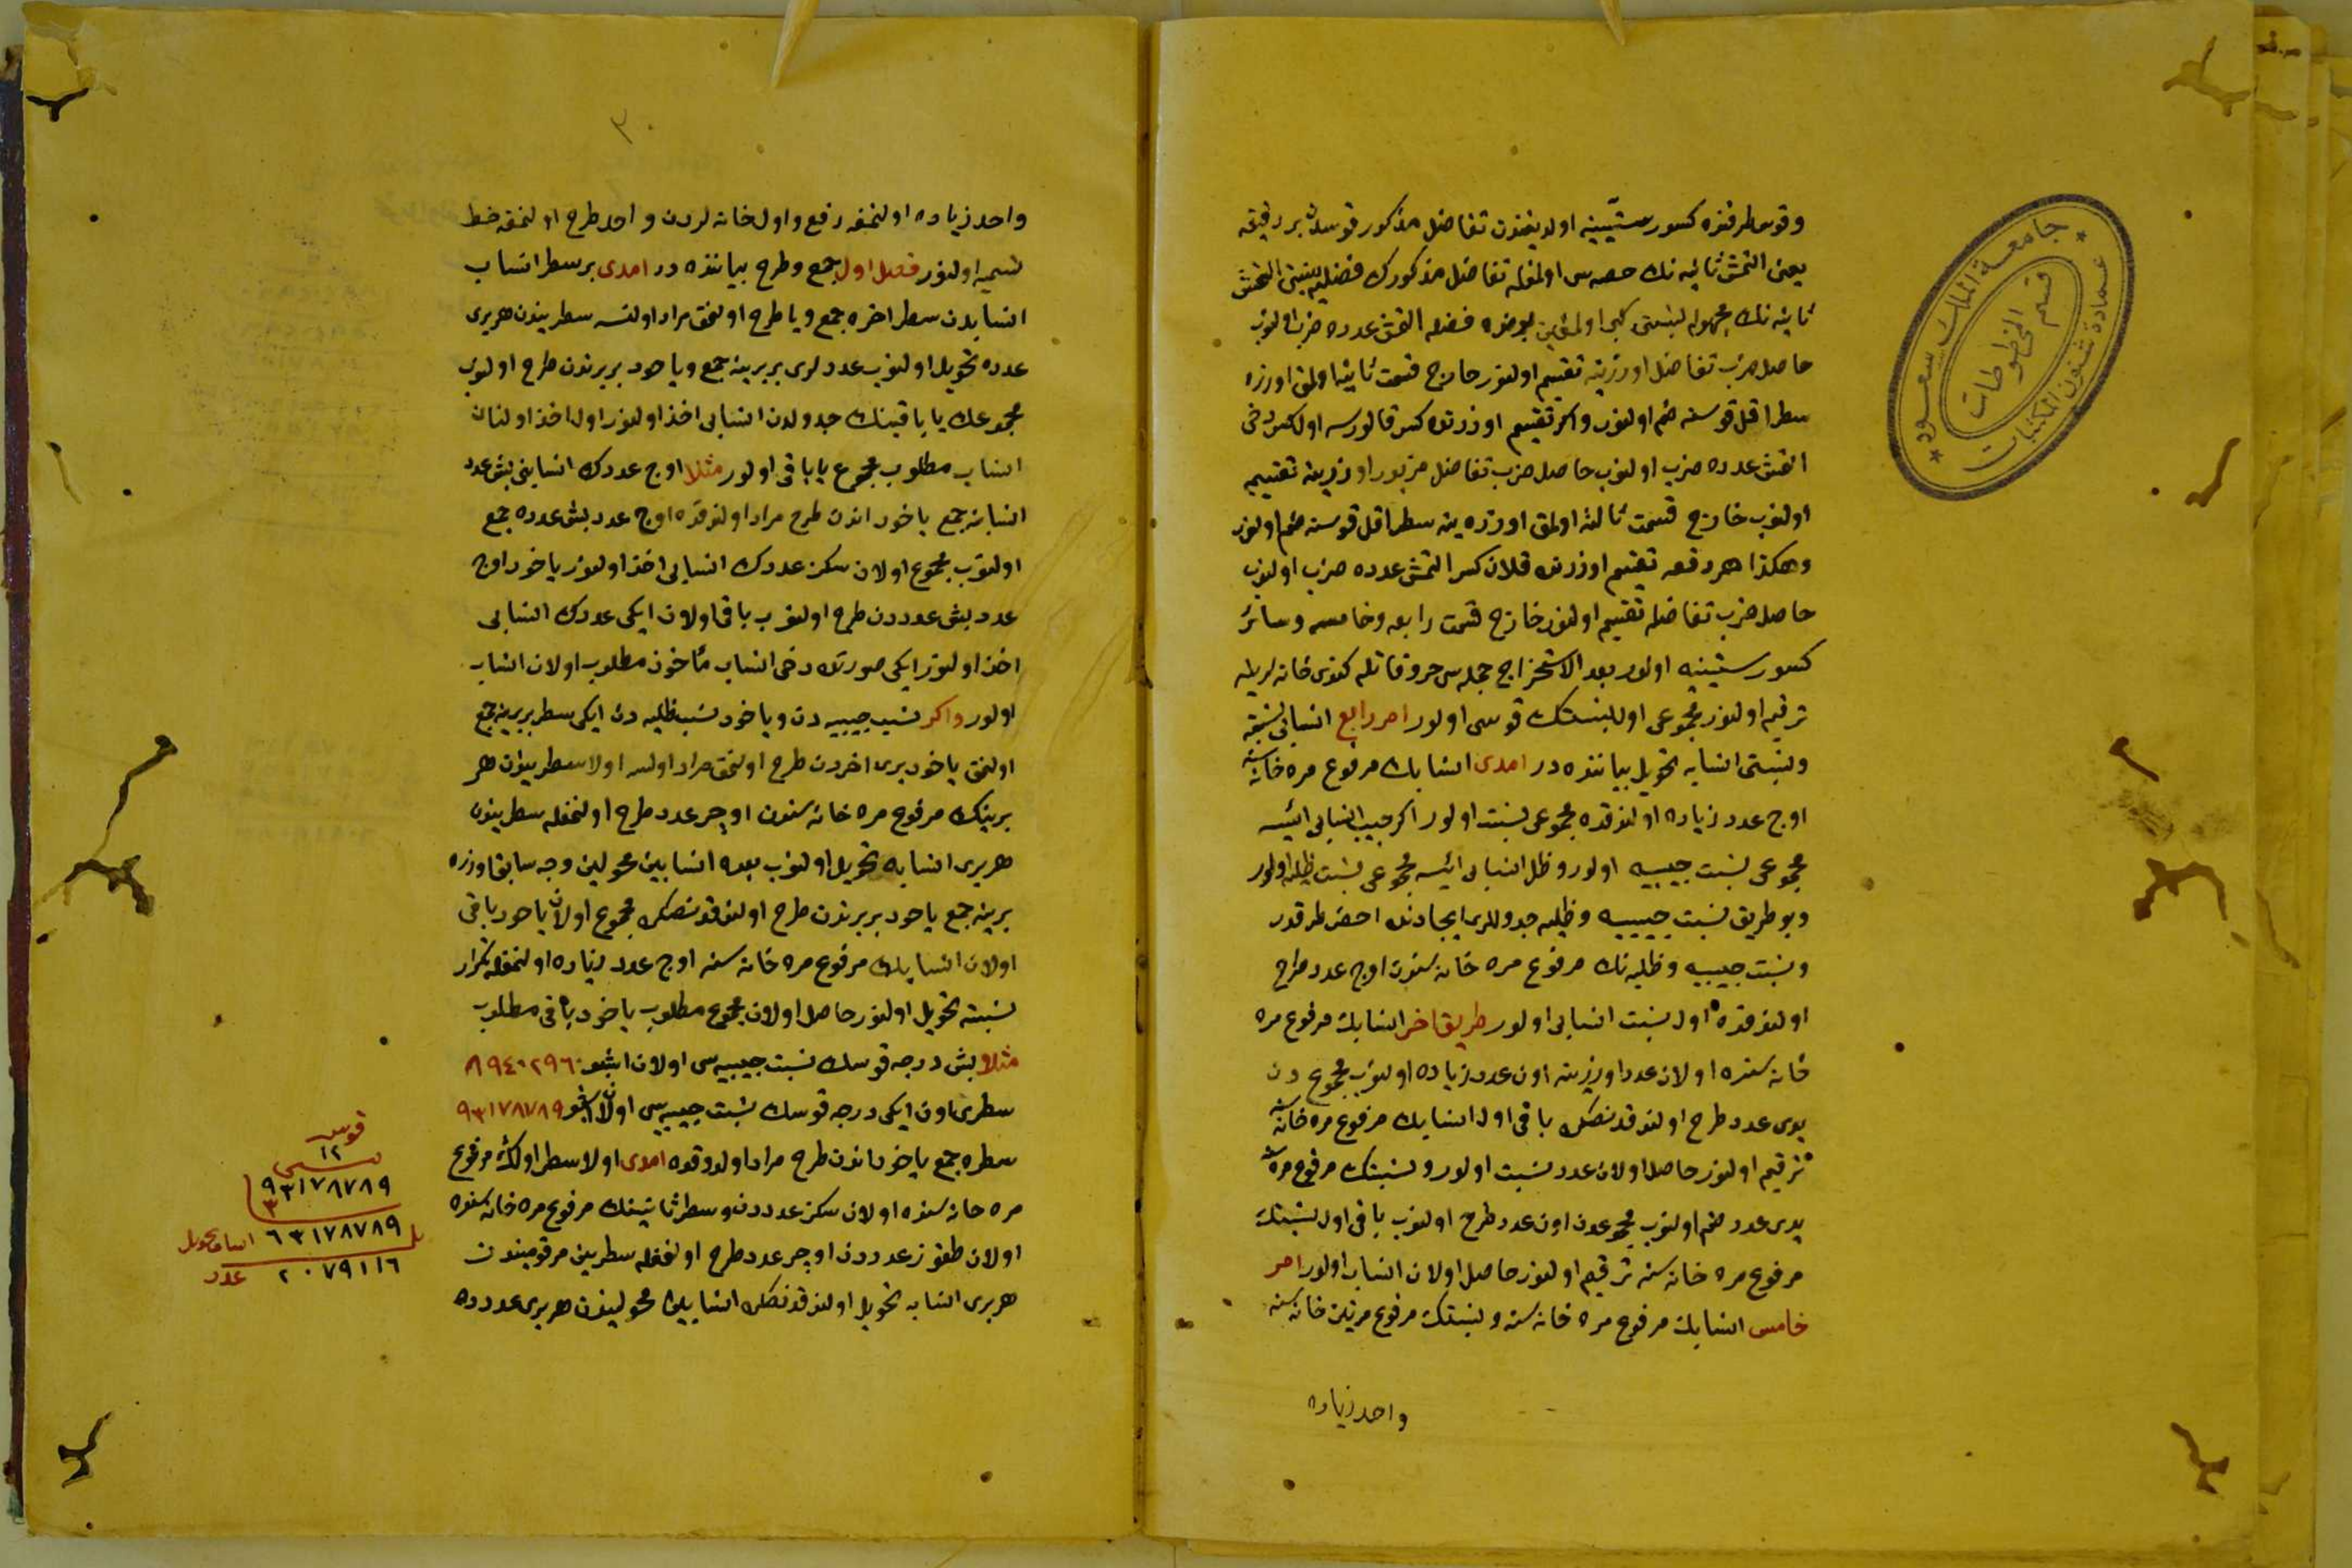 وقوس طرفنده كسور ستينيه اولديغندن تفاضل مذكور قوسدن بر دقيقه
يعنى التمش ثانيه نك حصه سى اولمغله تفاضل مذكورك فضله يه نسبتى التمش
ثانيه نك مجهوله نسبتى كبى اولمغين بوصرده فضله التمش عدده ضرب اولنوب
حاصل ضرب تفاضل اوزرينه تقسيم اولنور خارج قسمت ثانيه اولمق اوزره
سطر اقل قوسنه ضم اولنور واكر تقسيم اوزرنده كسر قالورسه اول كسر دخى
التمش عدده ضرب اولنوب حاصل ضرب تفاضل مزبور اوزرينه تقسيم
اولنوب خارج قسمت ثالثه اولمق اوزره ينه سطر اقل قوسنه ضم اولنور
وهكذا هر دفعه تقسيم اوزرنده قلان كسر التمش عدده ضرب اولنوب
حاصل ضرب تفاضله تقسيم اولنور خارج قسمت رابعه وخامسه وسائر
كسور ستينيه اولور بعد الاستخراج جمله سى حروفاتله كندى خانه لرينه
ترقيم اولنور مجموعى اول نسبتك قوسى اولور امر رابع انسابى نسبته
ونسبتى انسابه تحويل بياننده در امدى انسابك مرفوع مره خانه سنه
اوچ عدد زياده اولندقده مجموعى نسبت اولور اكر جيب انسابى ايسه
مجموعى نسبت جيبيه اولور وظل انسابى ايسه مجموعى نسبت ظليه اولور
وبو طريق نسبت جيبيه وظليه جدوللرى ايجادنده احضر طرقدر
ونسبت جيبيه وظليه نك مرفوع مره خانه سندن اوچ عدد طرح
اولندقده اول نسبت انسابى اولور طريق اخر انسابك مرفوع مره
خانه سنده اولان عدد اوزرينه اون عدد زياده اولنوب مجموع دن
يدى عدد طرح اولندقدنصكره باقى اول انسابك مرفوع مره خانه سنه
ترقيم اولنور حاصل اولان عدد نسبت اولور ونسبتك مرفوع مره سنه
يدى عدد ضم اولنوب مجموعدن اون عدد طرح اولنوب باقى اول نسبتك
مرفوع مره خانه سنه ترقيم اولنور حاصل اولان انساب اولور امر
خامس انسابك مرفوع مره خانه سنه ونسبتك مرفوع مرتين خانه سنه
واحد زياده
جامعة الملك سعود
قسم المخطوطات
عمادة شئون المكتبات
٣٠
واحد زياده اولنمغه رفع واول خانه لردن واحد طرح اولنمغه خط
تسميه اولنور فصل اول جمع وطرح بياننده در امدى بر سطر انساب
انسابدن سطر اخره جمع ويا طرح اولنمق مراد اولنسه سطرينون هر برى
عدده تحويل اولنوب عددلرى بربرينه جمع وياخود بربرندن طرح اولنوب
مجموعك يا باقينك جدولدن انسابى اخذ اولنور اول اخذ اولنان
انساب مطلوب مجموع يا باقى اولور مثلا اوچ عددك انسابنى بش عدد
انسابنه جمع ياخود اندن طرح مراد اولندقده اوچ عدد بش عدده جمع
اولنوب مجموع اولان سكز عددك انسابى اخذ اولنور ياخود اوچ
عدد بش عدددن طرح اولنوب باقى اولان ايكى عددك انسابى
اخذ اولنور ايكى صورتده دخى انساب مأخوذ مطلوب اولان انساب
اولور واكر نسب جيبيه دن وياخود نسب ظليه دن ايكى سطر بربرينه جمع
اولنمق ياخود برى اخردن طرح اولنمق مراد اولنسه اولا سطرينون هر
برينك مرفوع مره خانه سندن اوچر عدد طرح اولنمغله سطرينون
هر برى انسابه تحويل اولنوب بعده انسابين محولين وجه سابق اوزره
برينه جمع ياخود بربرندن طرح اولندقدنصكره مجموع اولان ياخود باقى
اولان انسابك مرفوع مره خانه سنه اوچ عدد زياده اولنمغله تكرار
نسبته تحويل اولنور حاصل اولان مجموع مطلوب ياخود باقى مطلوب
مثلا بش درجه قوسك نسبت جيبيه سى اولان اشبو ٨٩٤٠٢٩٦٠
سطرى اون ايكى درجه قوسك نسبت جيبيه سى اولان اشبو ٩٣١٧٨٧٨٩
سطره جمع ياخود اندن طرح مراد اولندقده امدى اولا سطر اولك مرفوع
مره خانه سنده اولان سكز عدددن وسطر ثانينك مرفوع مره خانه سنده
اولان طقوز عدددن اوچر عدد طرح اولنمغله سطرين مرقومينون
هر برى انسابه تحويل اولندقدنصكره انسابين محولينون هر برى عدده
قوس
١٢
نسبتى
٩٣١٧٨٧٨٩
٣
٦٣١٧٨٧٨٩ انسابه تحويل
٢٠٧٩١١٦ عدد